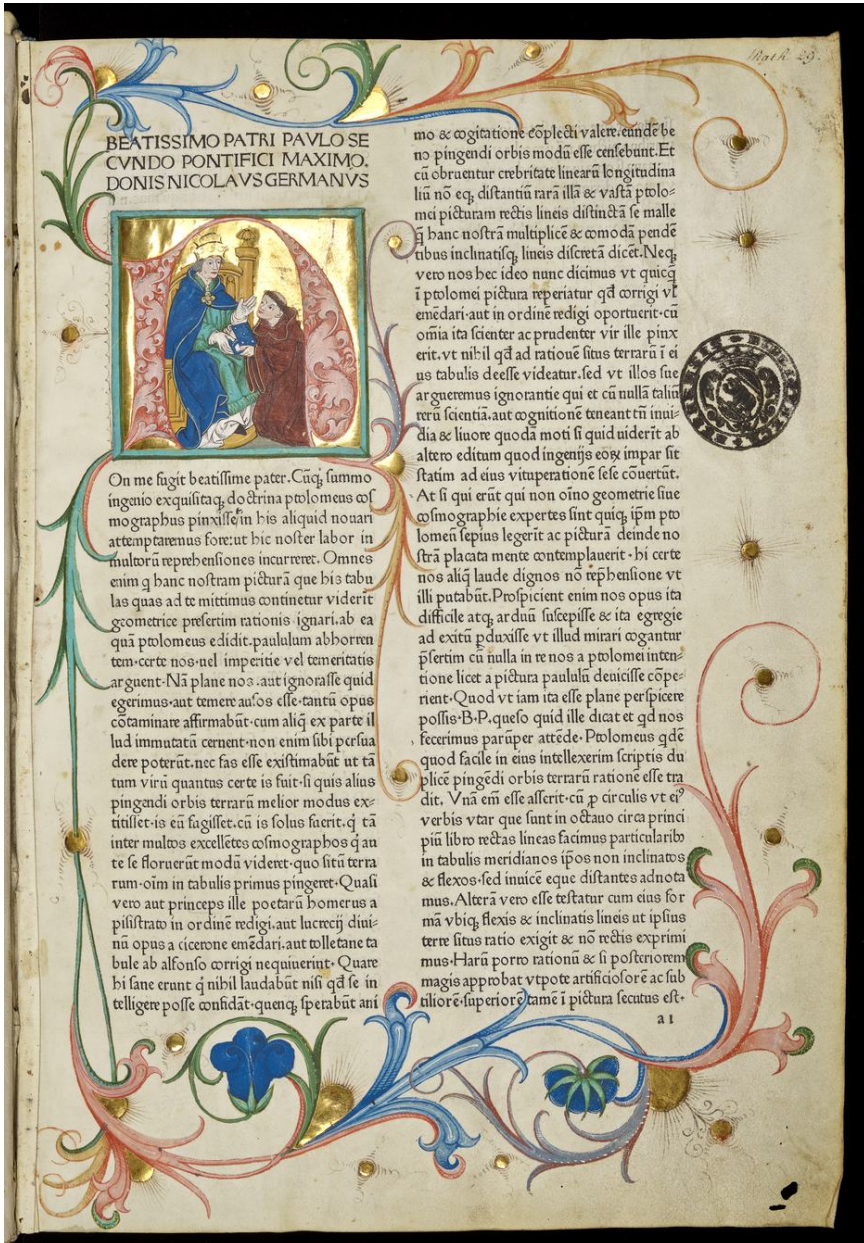 Math. 29.
BEATISSIMO PATRI PAVLO SE
CVNDO PONTIFICI MAXIMO.
DONIS NICOLAVS GERMANVS
On me fugit beatissime pater. Cūq; summo
ingenio exquisitaq; doctrina ptolomeus cos
mographus pinxisset in his aliquid nouari
attemptaremus fore: ut hic noster labor in
multorū reprehensiones incurreret. Omnes
enim q hanc nostram picturā que his tabu
las quas ad te mittimus continetur viderit
geometrice presertim rationis ignari. ab ea
quā ptolomeus edidit. paululum abhorren
tem. certe nos. uel imperitie vel temeritatis
arguent. Nā plane nos. aut ignorasse quid
egerimus. aut temere ausos esse. tantū opus
cōtaminare affirmabūt. cum aliq ex parte il
lud immutatū cernent. non enim sibi persua
dere poterūt. nec fas esse existimabūt ut tā
tum virū quantus certe is fuit. si quis alius
pingendi orbis terrarū melior modus ex-
titisset. is eū fugisset. cū is solus fuerit. q̇ tā
inter multos excellētes cosmographos q̇ au
te se floruerūt modū videret. quo sitū terra
rum. oīm in tabulis primus pingeret. Quasi
vero aut princeps ille poetarū homerus a
pisistrato in ordinē redigi. aut lucrecij diui-
nū opus a cicerone emēdari. aut tolletane ta
bule ab alfonso corrigi nequiuerint. Quare
hi sane erunt q̇ nihil laudabūt nisi qđ se in
telligere posse confidāt. quenq; sperabūt ani
mo & cogitatione cōplecti valere. eundē be
no pingendi orbis modū esse censebunt. Et
cū obruentur crebritate linearū longitudina
liū nō eq; distantiū rarā illā & vastā ptolo-
mei picturam rectis lineis distinctā se malle
q̄ hanc nostrā multiplicē & comodā pendē
tibus inclinatisq; lineis discretā dicēt. Neq;
vero nos hec ideo nunc dicimus vt quicq̄
ī ptolomei pictura reperiatur qđ corrigi vl̄
emēdari. aut in ordinē redigi oportuerit. cū
omīa ita scienter ac prudenter vir ille pinx
erit. vt nihil qđ ad rationē situs terrarū ī ei
us tabulis deesse videatur. sed vt illos sue
argueremus ignorantie qui et cū nullā taliū
rerū scientiā. aut cognitionē teneant tn̄ inui-
dia & liuore quodā moti si quid uiderīt ab
altero editum quod ingenijs eoꝝ impar sit
statim ad eius vituperationē sese cōuertūt.
At si qui erūt qui non oīno geometrie siue
cosmographie expertes sint quiq; ip̄m pto
lomeū sepius legerīt ac picturā deinde no
strā placata mente contemplauerīt. hi certe
nos aliq̇ laude dignos nō rep̄hensione vt
illi putabūt. Prospicient enim nos opus ita
difficile atq; arduū suscepisse & ita egregie
ad exitū ꝑduxisse vt illud mirari cogantur
p̄sertim cū nulla in re nos a ptolomei inten-
tione licet a pictura paululū deuicisse cōpe-
rient. Quod vt iam ita esse plane perspicere
possis. B. P. queso quid ille dicat et qđ nos
fecerimus parūper attēde. Ptolomeus qđē
quod facile in eius intellexerim scriptis du
plicē pingēdi orbis terrarū rationē esse tra
dit. Vnā em̄ esse asserit. cū ꝓ circulis vt eiꝰ
verbis vtar que sunt in octauo circa princi
piū libro rectas lineas facimus particularibꝰ
in tabulis meridianos ip̄os non inclinatos
& flexos. sed inuicē eque distantes adnota
mus. Alterā vero esse testatur cum eius for
mā vbiq; flexis & inclinatis lineis ut ipsius
terre situs ratio exigit & nō rectis exprimi
mus. Harū porro rationū & si posteriorem
magis approbat vtpote artificiosorē ac sub
tiliorē. superiorē tamē ī pictura secutus est.
a 1